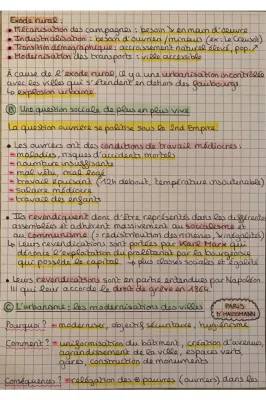 Exode rural :
• Mécanisation des campagnes : besoin ↘ en main d'œuvre
• Industrialisation : besoin d'ouvriers/mineurs (ex : Le Creusot)
• Transition démographique : accroissement naturel élevé, pop. ↗
• Modernisation des transports : ville accessible
À cause de l'exode rural, il y a une urbanisation incontrôlée
avec les villes qui s'étendent en dehors des faubourgs
↳ explosion urbaine.
Ⓑ Une question sociale de plus en plus vive
La question ouvrière se politise sous le 2nd Empire.
• Les ouvriers ont des conditions de travail médiocres :
= maladies, risques d'accidents mortels
= nourriture insuffisante
= mal vêtu, mal logé
= travail épuisant (12h debout, température insoutenable)
= salaire médiocre
= travail des enfants
• Ils revendiquent donc d'être représentés dans les différentes
assemblées et adhèrent massivement au socialisme et
au communisme (= redistribution des richesses, ↘ inégalités)
↳ Leurs revendications sont portées par Karl Marx qui
dénonce l'exploitation du prolétariat par la bourgeoisie
qui possède le capital → plus classes sociales et égalité
• Leurs revendications sont en partie entendues par Napoléon
III qui leur accorde le droit de grève en 1864.
Ⓒ L'urbanisme : les modernisations des villes
PARIS
D'HAUSSMANN
Pourquoi ? = moderniser, objectif sécuritaire, hygiénisme
Comment ? = uniformisation du bâtiment, création d'avenues,
agrandissement de la ville, espaces verts,
gares, construction de monuments
Conséquences ? = relégation des pauvres (ouvriers) dans les